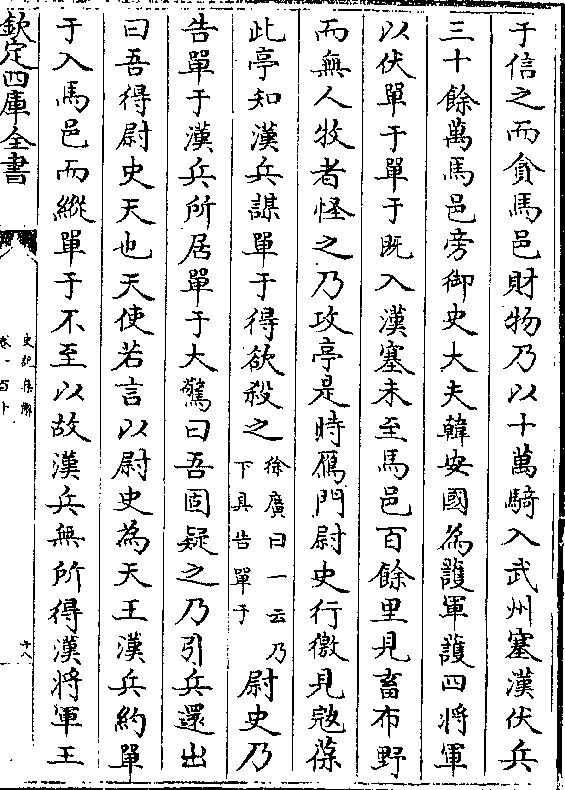 于信之而貪馬邑財物乃以十萬騎入武州塞漢伏兵
三十餘萬馬邑旁御史大夫韓安國為護軍護四將軍
以伏單于單于既入漢塞未至馬邑百餘里見畜布野
而無人牧者怪之乃攻亭是時鴈門尉史行徼見寇葆
此亭知漢兵謀單于得欲殺之徐廣曰一云乃下具告單于尉史乃
告單于漢兵所居單于大驚曰吾固疑之乃引兵還出
曰吾得尉史天也天使若言以尉史為天王漢兵約單
于入馬邑而縱單于不至以故漢兵無所得漢將軍王
欽定四庫全書
史記集解
卷一百十
十八